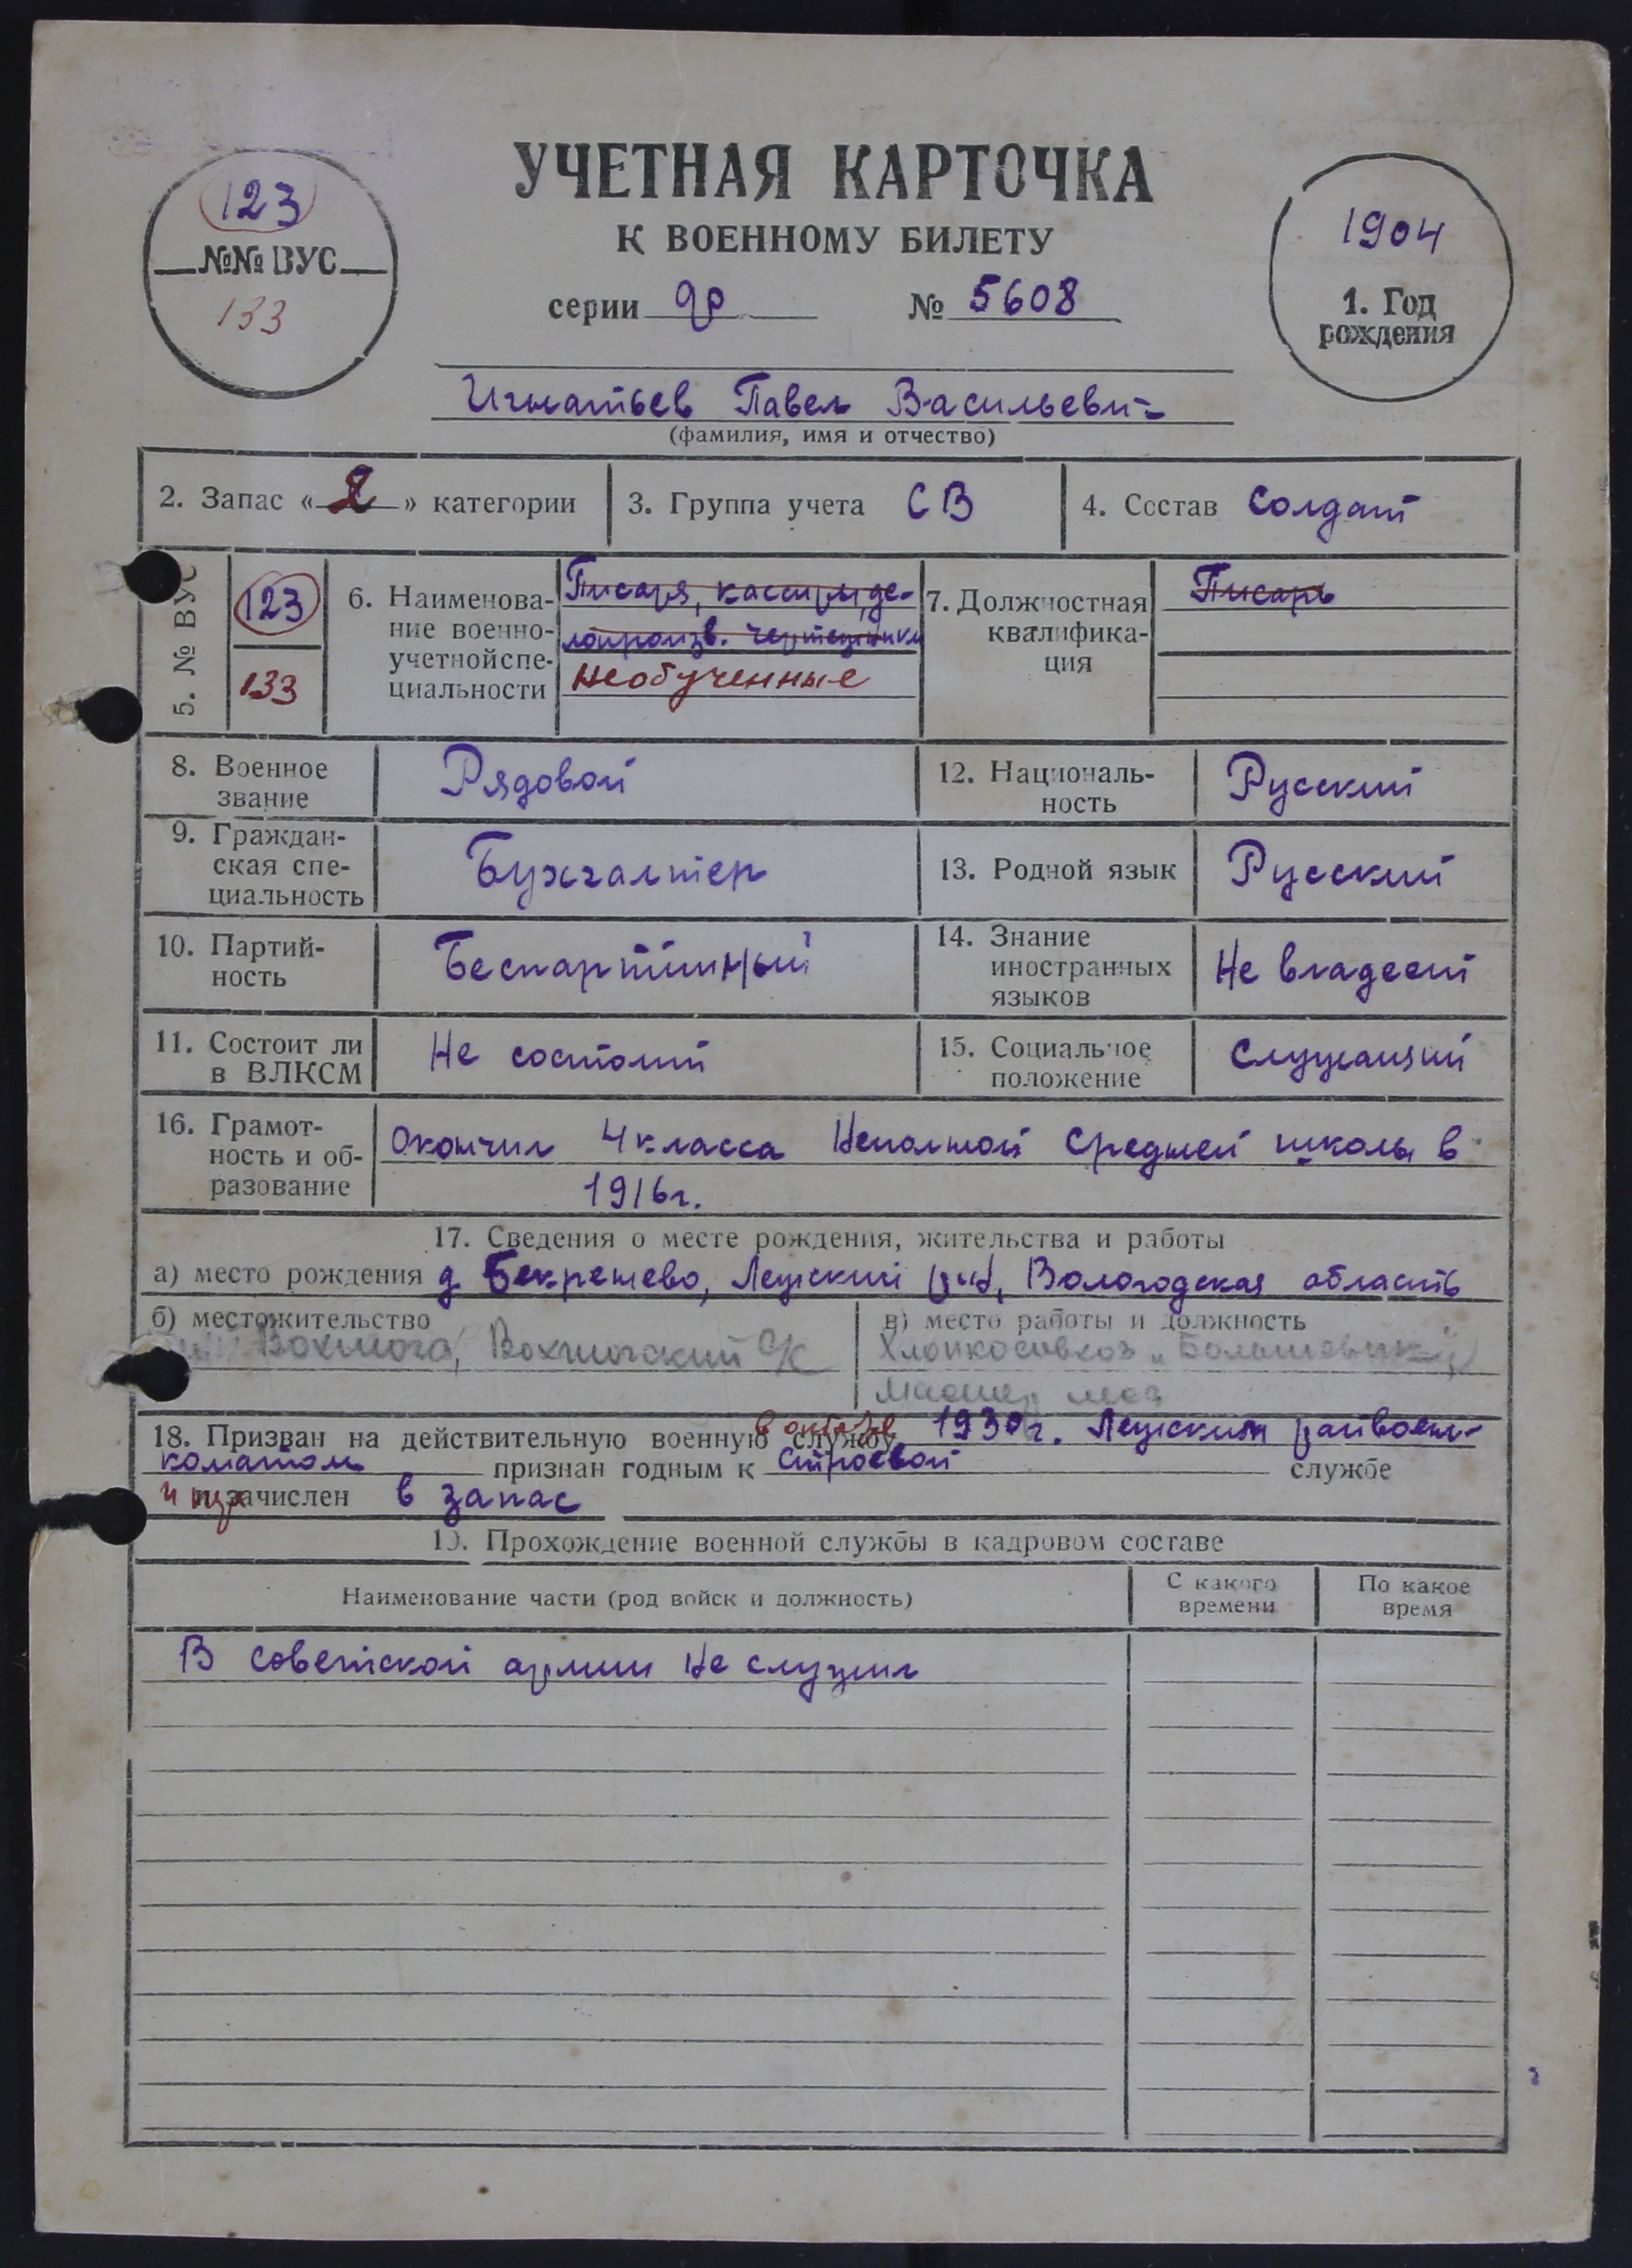 УЧЕТНАЯ КАРТОЧКА
К ВОЕННОМУ БИЛЕТУ
серии до № 5608
123
№№ ВУС
133
1904
1. Год
рождения
Игнатьев Павел Васильевич
(фамилия, имя и отчество)
2. Запас «2» категории
3. Группа учета СВ
4. Состав Солдат
5. № ВУС
123
133
6. Наименова-
ние военно-
учетной спе-
циальности
Писаря, кассиры, де-
лопроизв. чертежники
Необученные
7. Должностная
квалифика-
ция
Писарь
8. Военное
звание
Рядовой
12. Националь-
ность
Русский
9. Граждан-
ская спе-
циальность
Бухгалтер
13. Родной язык
Русский
10. Партий-
ность
Беспартийный
14. Знание
иностранных
языков
Не владеет
11. Состоит ли
в ВЛКСМ
Не состоит
15. Социальное
положение
Служащий
16. Грамот-
ность и об-
разование
Окончил 4 класса Неполной Средней школы в
1916г.
17. Сведения о месте рождения, жительства и работы
а) место рождения д. Бекрешево, Лежский, Вологодская область
б) местожительство
Вохмога, Вохтогский
в) место работы и должность
Хлопкосовхоз „Большевик"
18. Призван на действительную военную службу 1930г. Лежским райвоен-
коматом признан годным к строевой службе
и зачислен в запас
19. Прохождение военной службы в кадровом составе
Наименование части (род войск и должность)
С какого
времени
По какое
время
В Советской армии Не служил